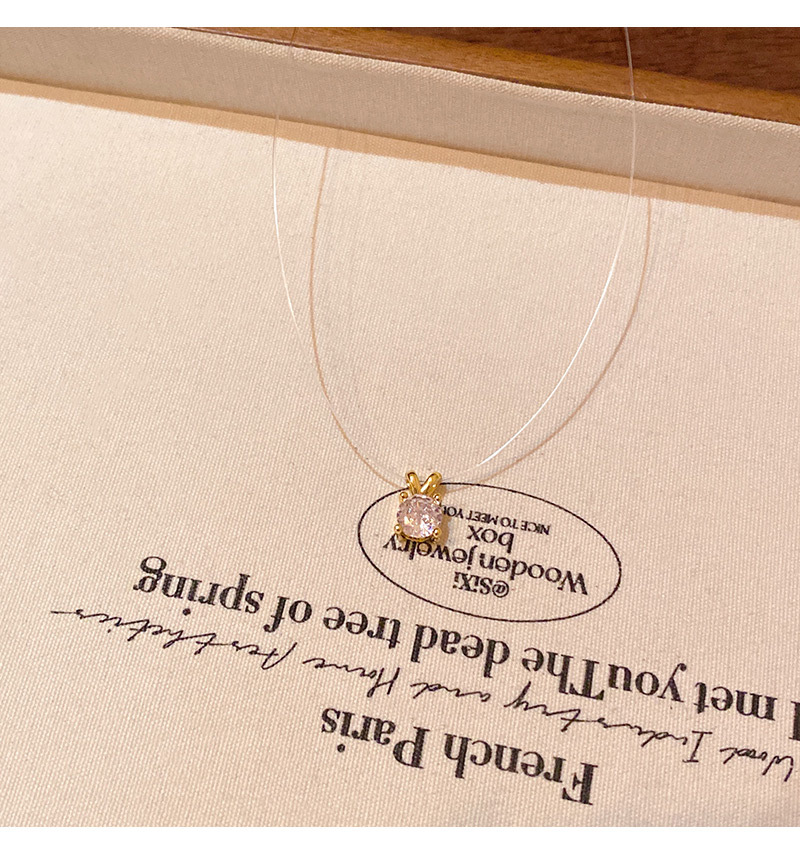 French Paris
Wood Industry and Home Aesthetics
I met youThe dead tree of spring
@SiXi
Wooden jewelry
box
NICE TO MEET YOU